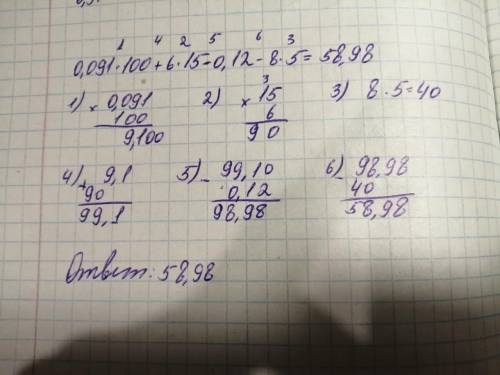 1 4 2 5 6 3
0,091·100+6·15-0,12-8·5=58,98
1) × 0,091 2) × 15 3) 8·5=40
3
100 6
9,100 90
4) + 9,1 5) - 99,10 6) - 98,98
90 0,12 40
99,1 98,98 58,98
Ответ: 58,98